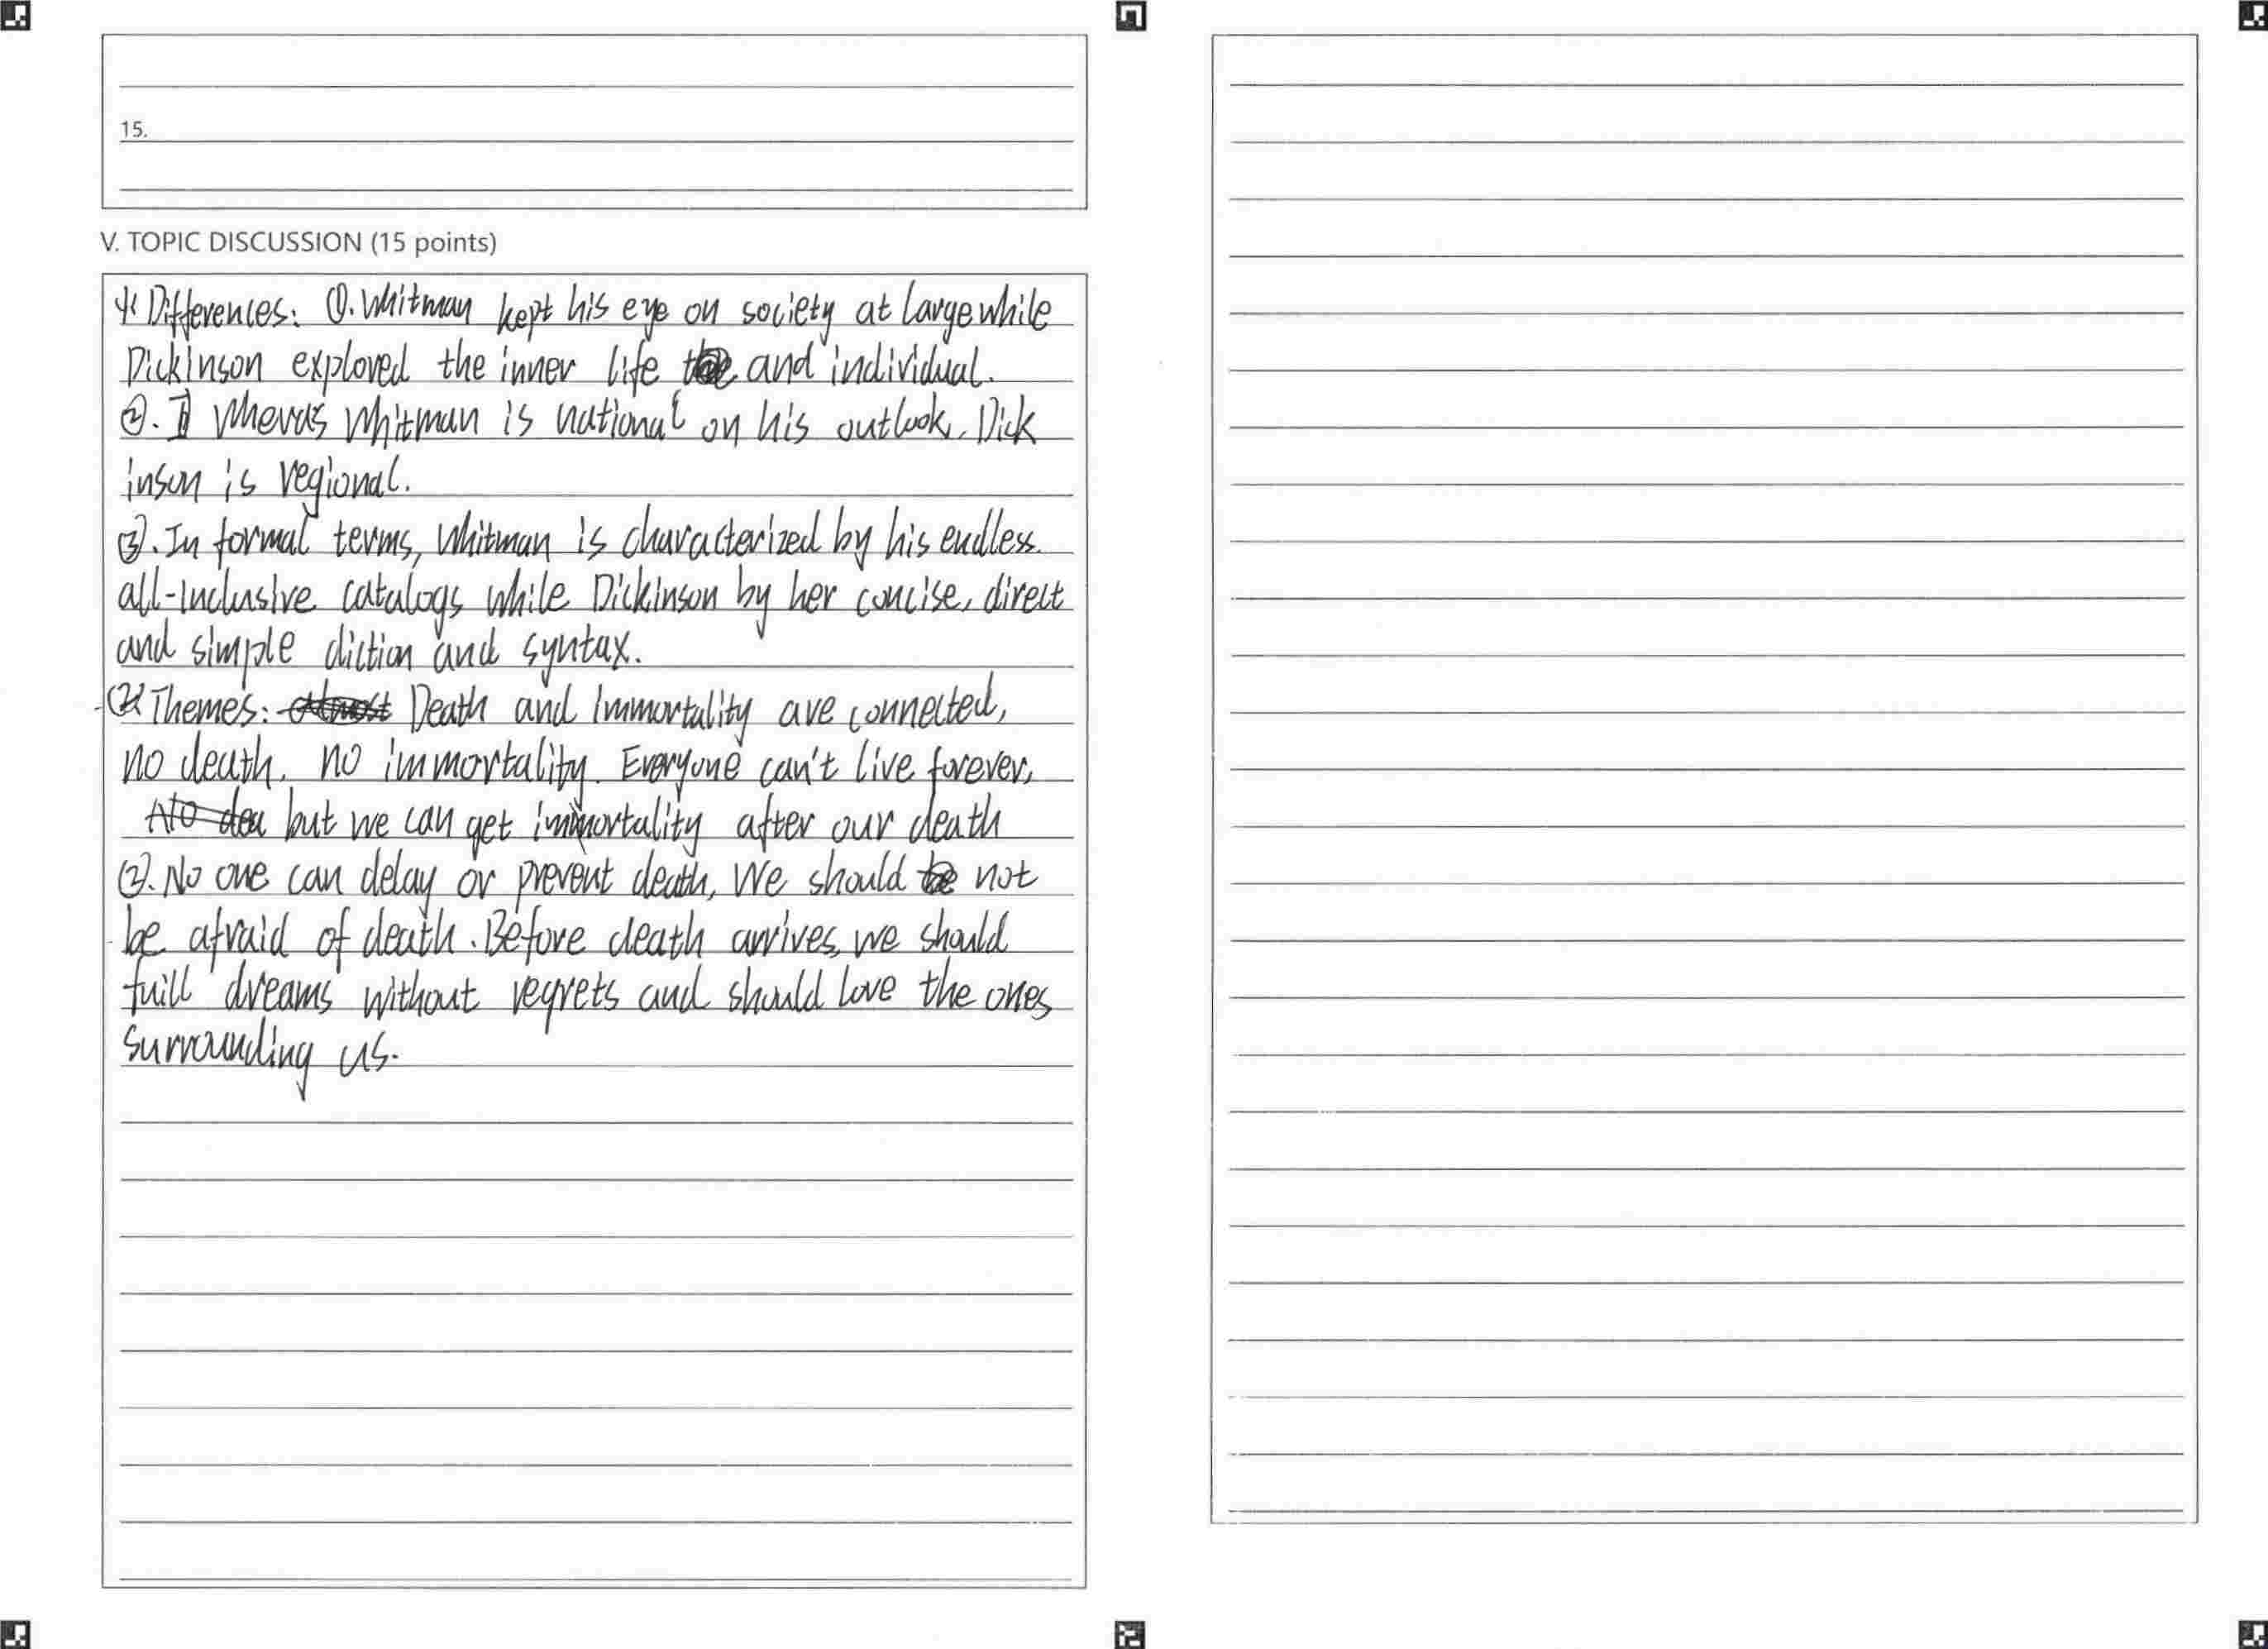 15.
V. TOPIC DISCUSSION (15 points)
Differences: ①. Whitman kept his eye on society at large while
Dickinson explored the inner life and individual.
②. Wheras Whitman is national on his outlook, Dick
inson is regional.
③. In formal terms, Whitman is characterized by his endless.
all-inclusive catalogs while Dickinson by her concise, direct
and simple diction and syntax.
Themes: Death and immortality are connected,
no death, no immortality. Everyone can't live forever,
but we can get immortality after our death
②. No one can delay or prevent death, We should not
be afraid of death. Before death arrives, we should
fuill dreams without regrets and should love the ones
surrounding us.